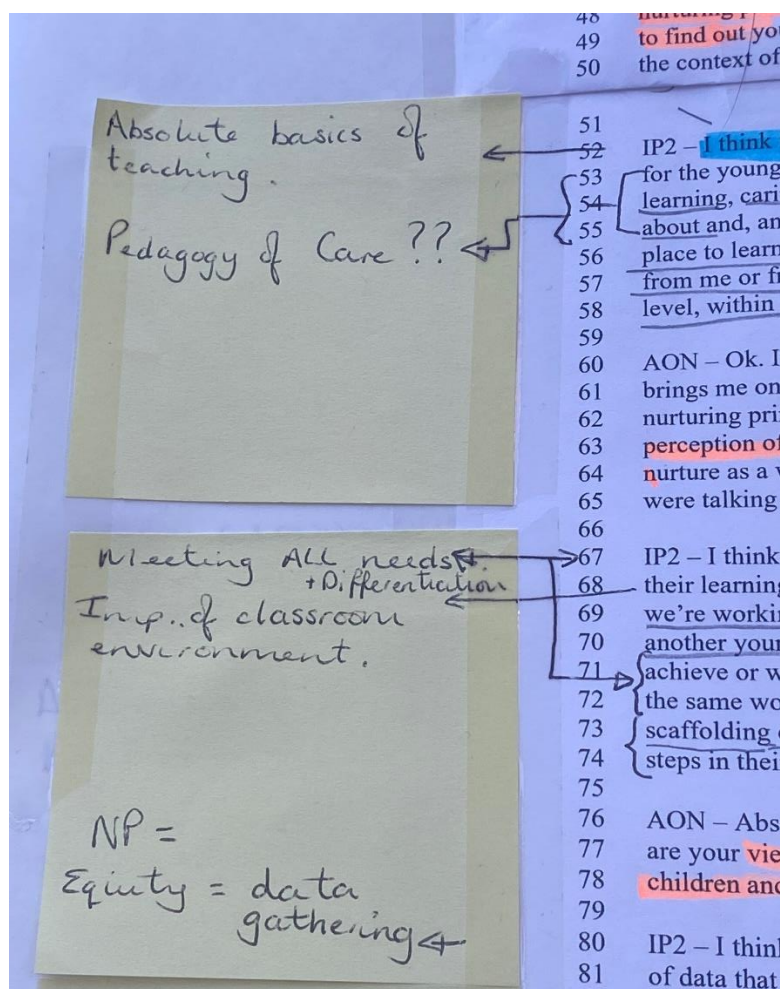 Absolute basics of
teaching.
Pedagogy of Care ??
Meeting ALL needs.
+Differentiation
Imp. of classroom
environment.
NP =
Equity = data
gathering
48
49 to find you
50 the context of
51
52 IP2 – I think
53 for the young
54 learning, cari
55 about and, an
56 place to learn
57 from me or f
58 level, within
59
60 AON – Ok. I
61 brings me on
62 nurturing pri
63 perception of
64 nurture as a
65 were talking
66
67 IP2 – I think
68 their learning
69 we’re worki
70 another your
71 achieve or w
72 the same wo
73 scaffolding
74 steps in thei
75
76 AON – Abs
77 are your vie
78 children and
79
80 IP2 – I think
81 of data that